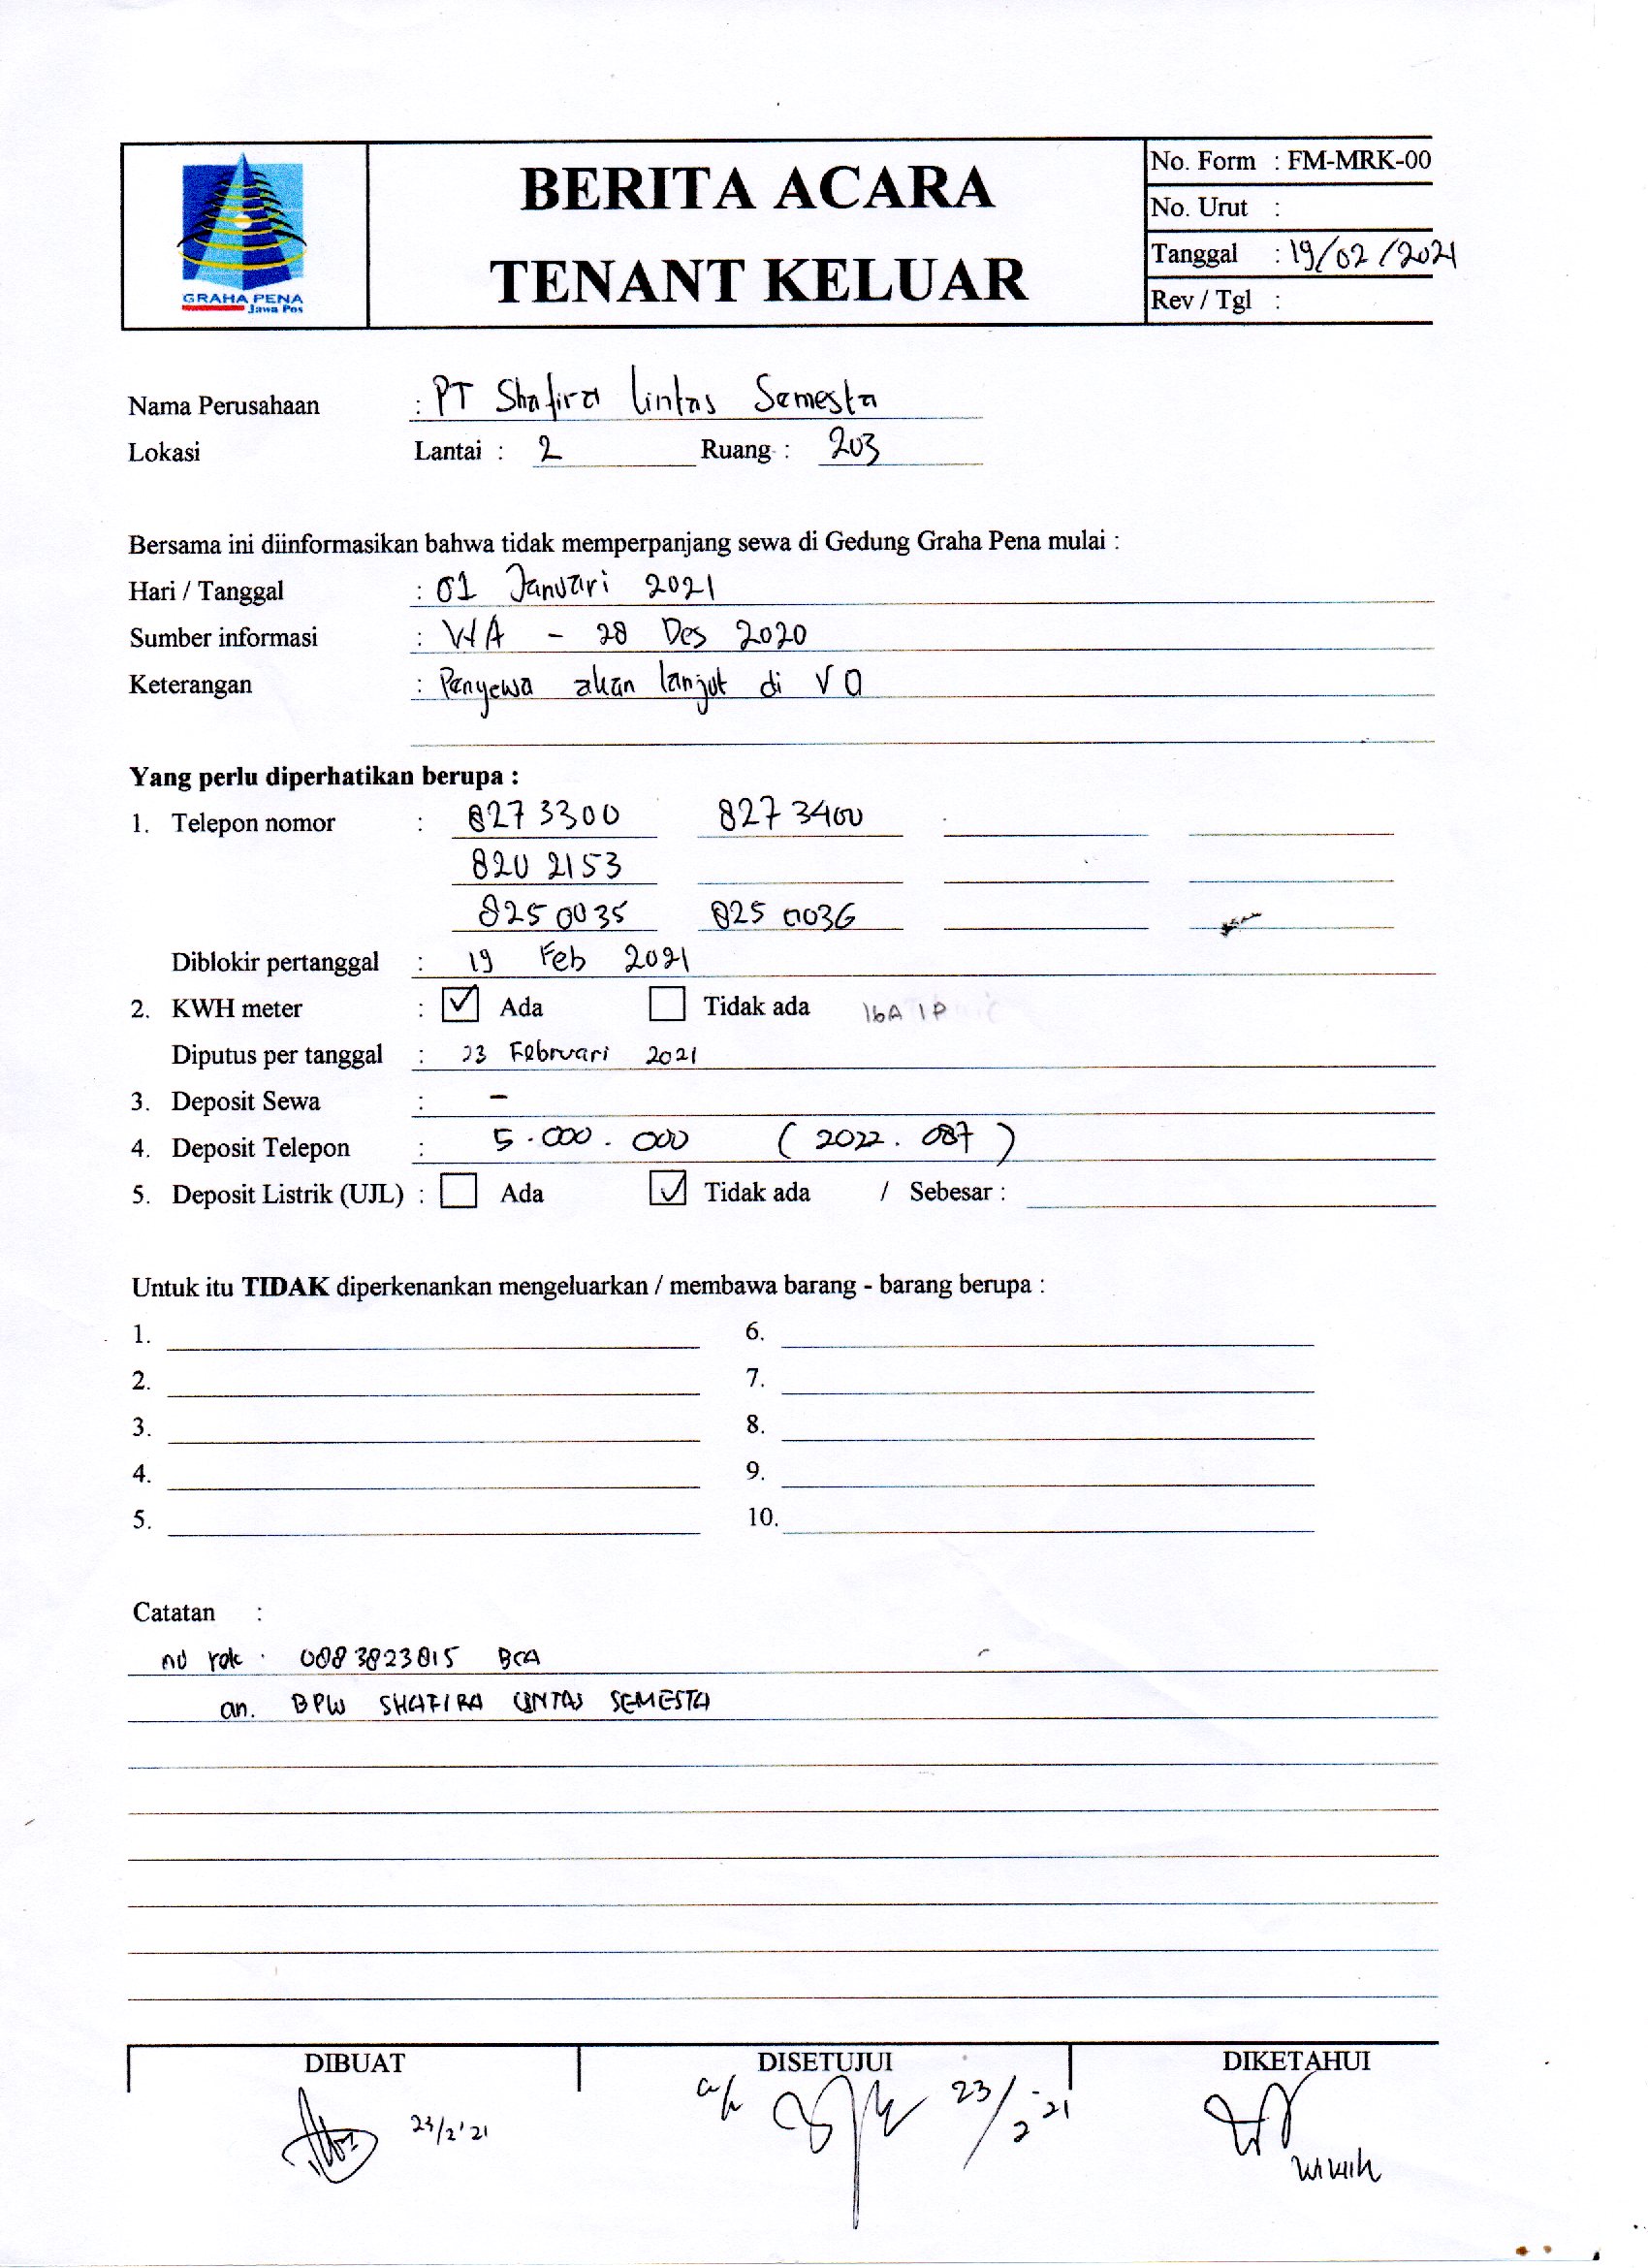 GRAHA PENA
Jawa Pos
BERITA ACARA
TENANT KELUAR
No. Form : FM-MRK-00
No. Urut :
Tanggal : 19/02/2021
Rev / Tgl :
Nama Perusahaan : PT Shafira Lintas Semesta
Lokasi Lantai : 2 Ruang : 203
Bersama ini diinformasikan bahwa tidak memperpanjang sewa di Gedung Graha Pena mulai :
Hari / Tanggal : 01 Januari 2021
Sumber informasi : WA - 28 Des 2020
Keterangan : Penyewa akan lanjut di VO
Yang perlu diperhatikan berupa :
1. Telepon nomor : 827 3300 827 3400
820 2153
825 0035 825 0036
Diblokir pertanggal : 19 Feb 2021
2. KWH meter : Ada Tidak ada 16A 1P
Diputus per tanggal : 23 Februari 2021
3. Deposit Sewa : -
4. Deposit Telepon : 5.000.000 (2022.087)
5. Deposit Listrik (UJL) : Ada Tidak ada / Sebesar :
Untuk itu TIDAK diperkenankan mengeluarkan / membawa barang - barang berupa :
1. 6.
2. 7.
3. 8.
4. 9.
5. 10.
Catatan :
no rek : 0883823815 BCA
an. BPW SHAFIRA LINTAS SEMESTA
DIBUAT DISETUJUI DIKETAHUI
23/2'21 a/n 23/2-21
Wiwik